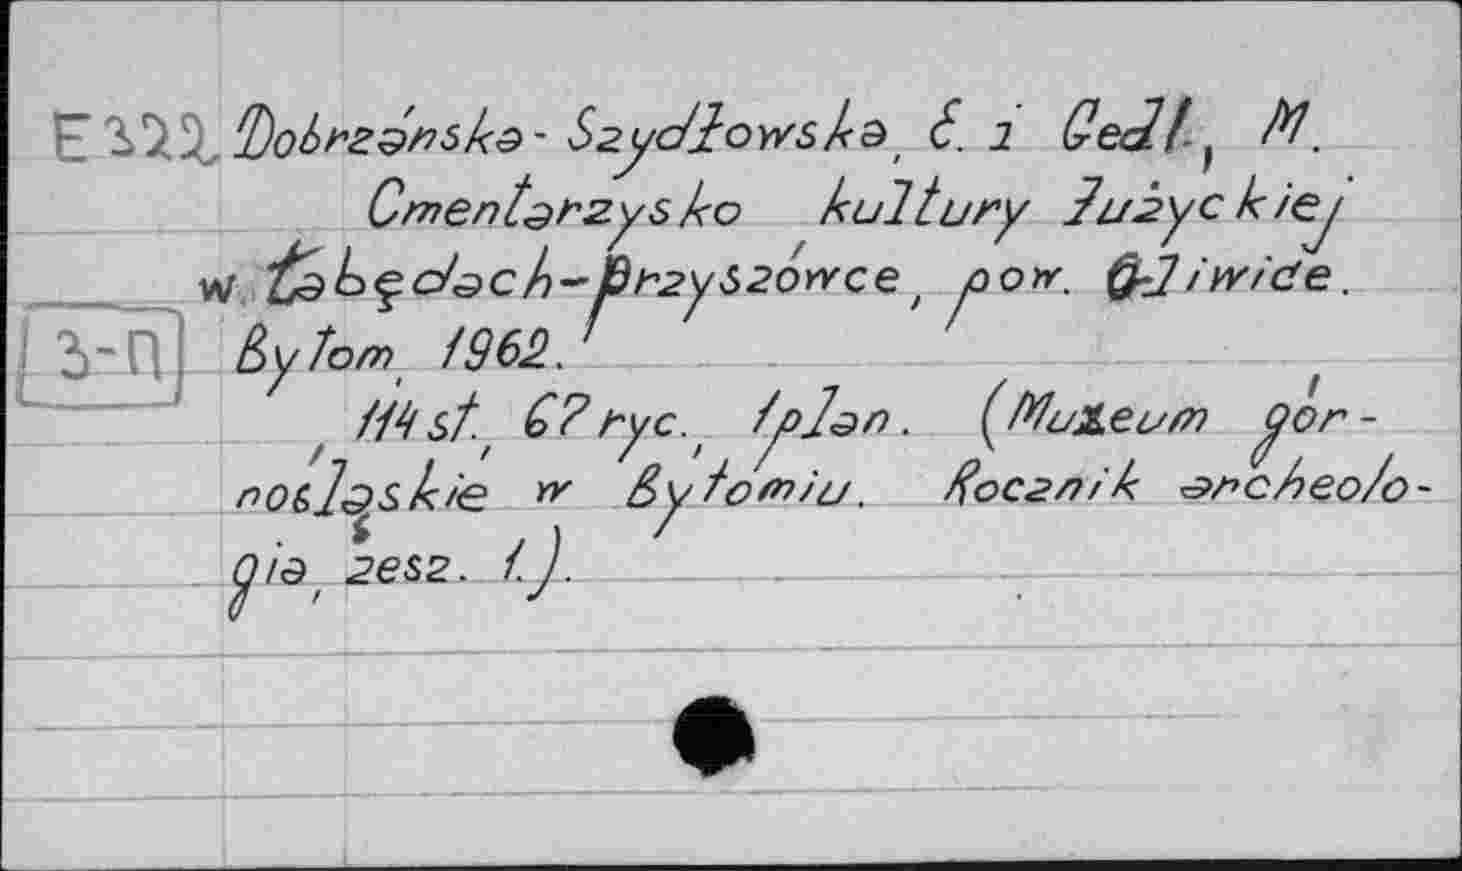 E322. Dobrzańska-Szydłowska, E. i Gedl, M.
Cmentarzysko kultury łużyckiej
w Łabędach-Przyszówce, pow. Gliwice.
3-П
Bytom, 1962.
114 st., 67 ryc., 1 plan. (Muzeum gór-
nośląskie w Bytomiu. Rocznik archeolo-
gia, zesz. 1.).